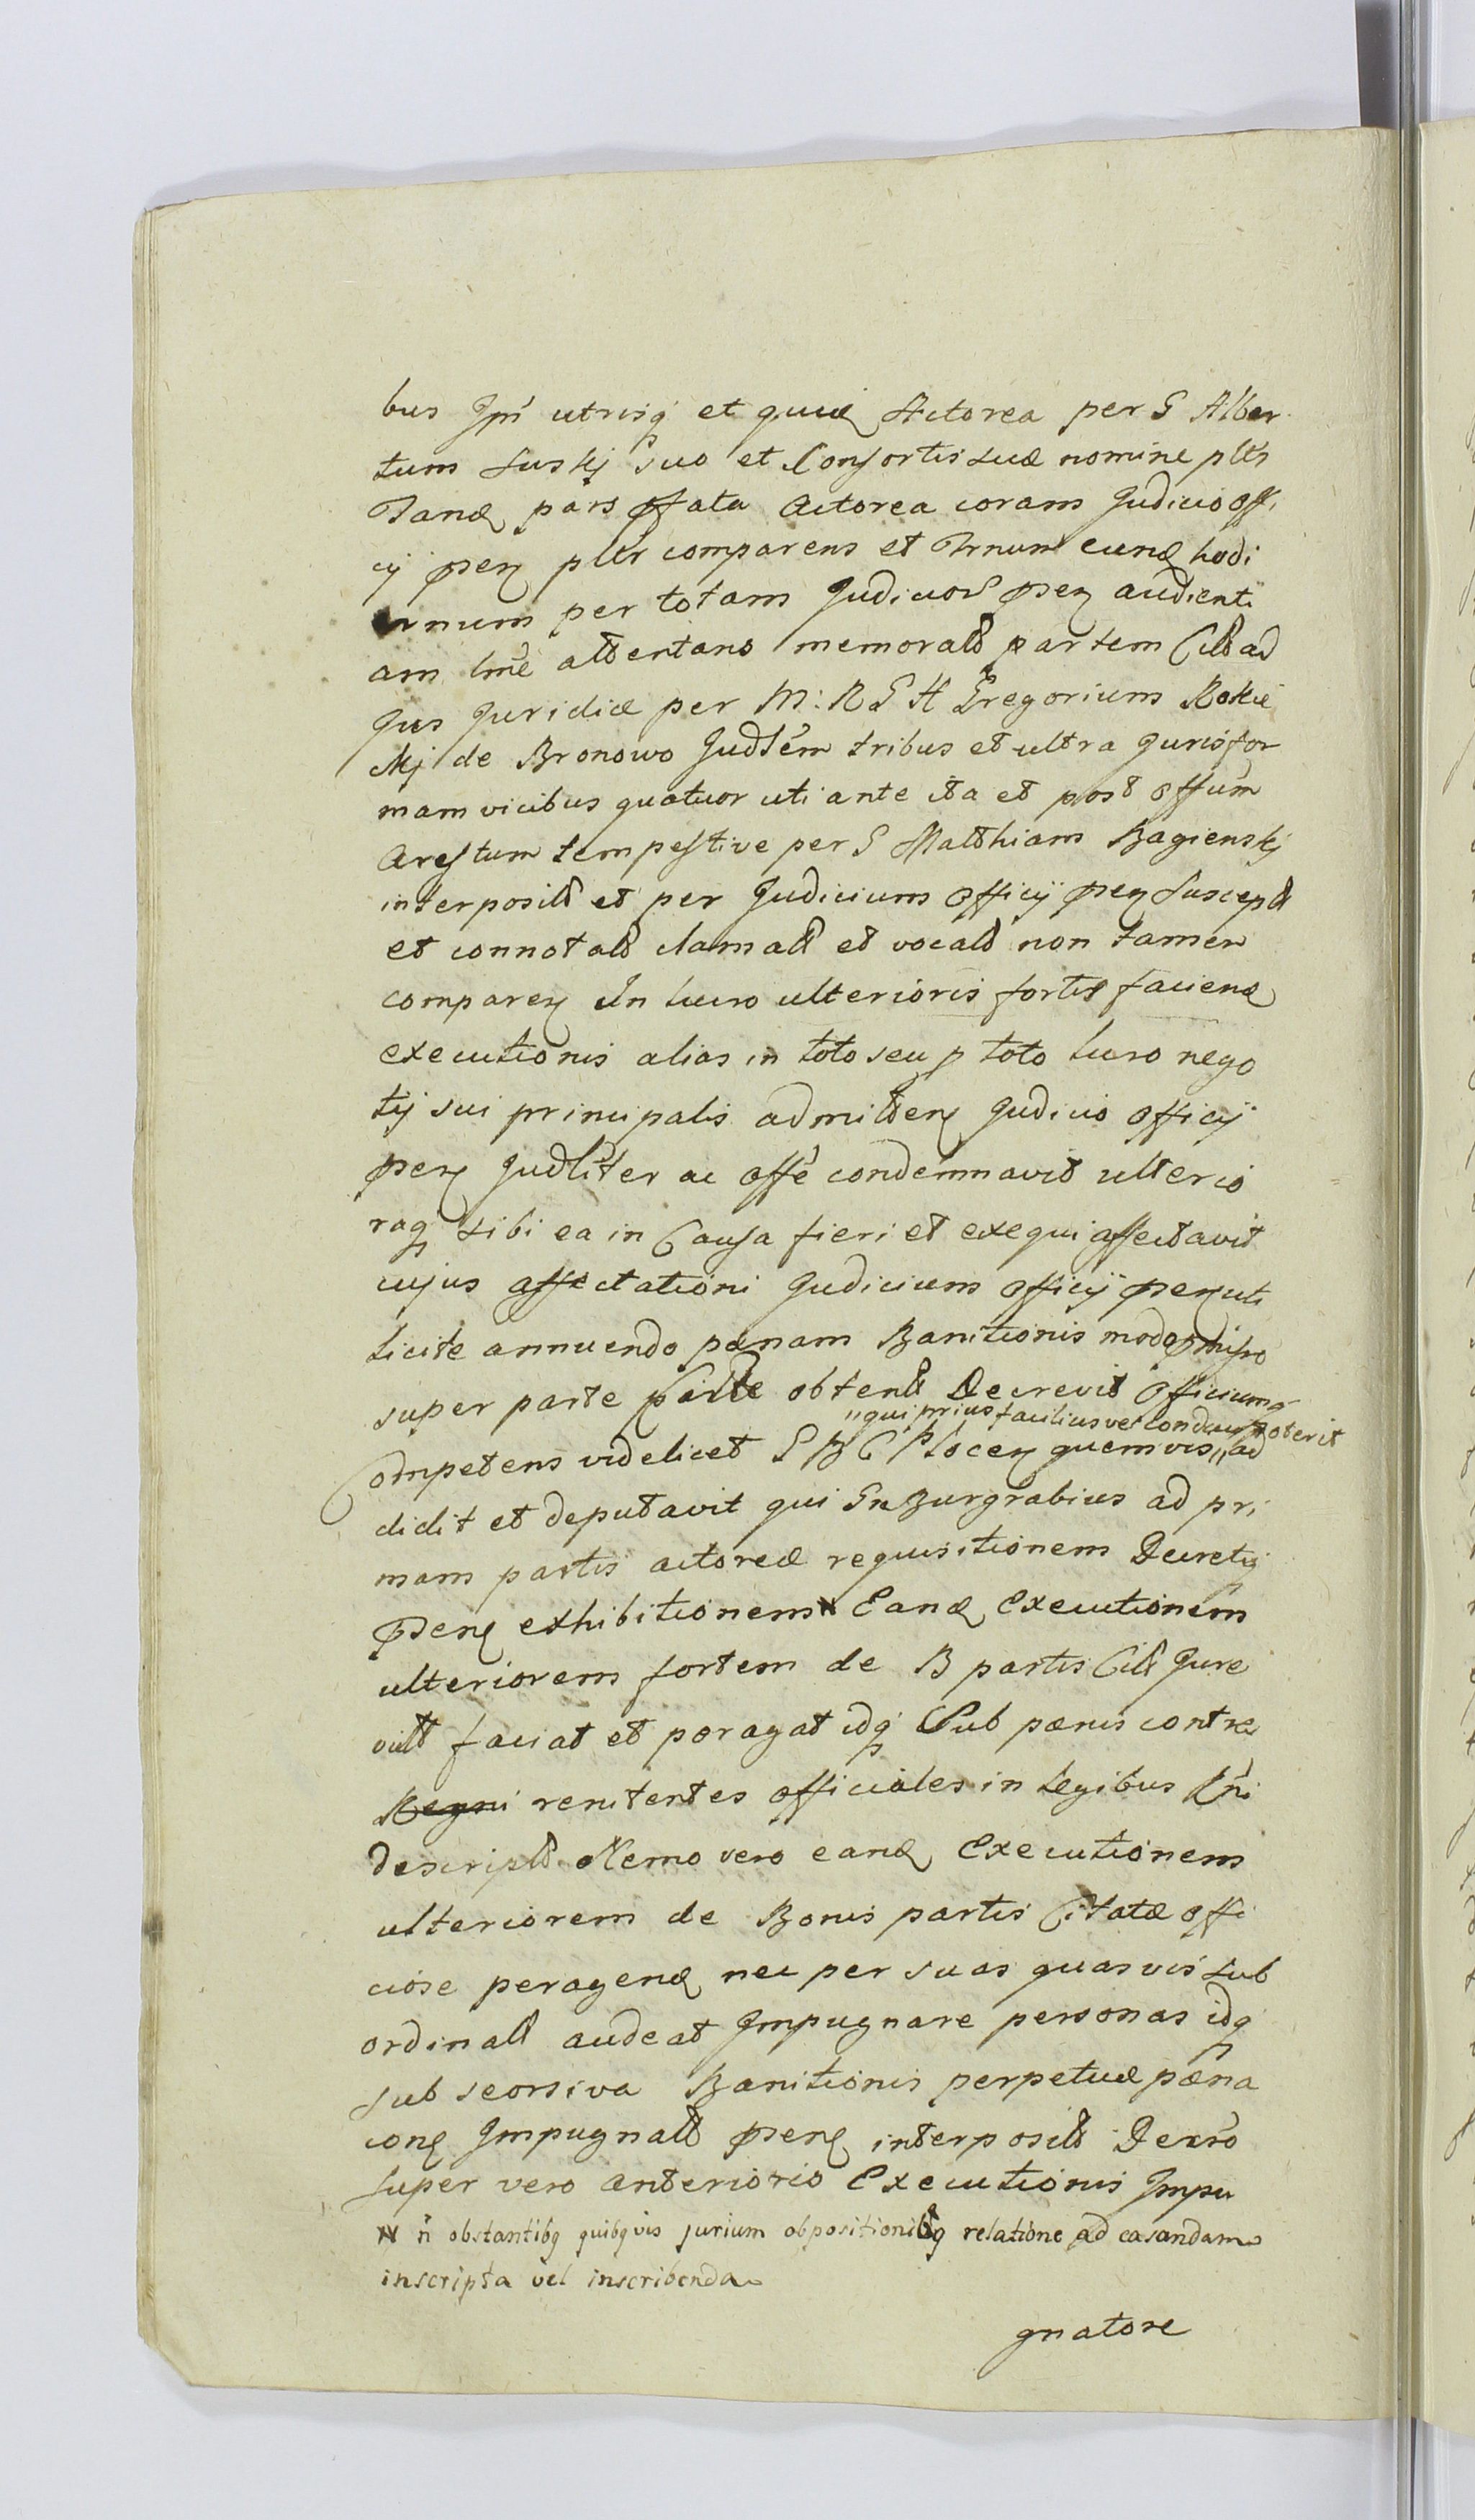 bus Ipń utrisq et quid Actorea per G Alber
tum Suskj suo et Consortis suæ nomine pltr
Tand pars pfata Actorea coram Judicio offi
cij pseń pltr comparens et Trnum eund hodi
ernum per totam Judicior pseń audienti
am lmē attentans memoratt partem Citt ad
Jus Juridice per M: N G H Gregorium Rokic
ckj de Bronowo Judłem tribus et ultra Juris for
mam vicibus quatuor uti ante ita et post offum
Arestum tempestive per G Matthiam Bagienskj
interpositt et per Judicium Officij pseń Susceptt
et connotatt clamatt et vocatt non tamen
comparen In lucro ulterioris fortis faciend
executionis alias in toto seu p toto lucro nego
tij sui principalis admitten Judicio Officij
pseń Judłiter ac offē condemnavit ulterio
raq sibi ea in Causa fieri et exequi affectavit
cujus affectationi Judicium Officij pseń uti
licite annuendo pænam Banitionis modo pmisso
super parte Citte obtentt Decrevit Officiumq
"qui prius facilius vel conduci poterit
Competens videlicet G B C Plocen quemvis" ad
didit et deputavit qui Gn Burgrabius ad pri
mam partis actoreæ requisitionem Decretiq
pseń exhibitionem N Eand Executionem
ulteriorem fortem de B partis Citt Jure
vitt faciat et peragat idq Sub pænis contra
Regni renitentes officiales in legibus Rńi
descriptt Nemo vero eand Executionem
ulteriorem de Bonis partis Citatæ offi
ciose peragend nec per suas quasvis sub
ordinatt audeat Impugnare personas idq
sub seorsiva Banitionis perpetuæ pæna
con Impugnatt pseń interpositt Decro
super vero anterioris Executionis Impu
N ń obstantibq quibqvis jurium obpositionibq relatione ad casandam
inscripta vel inscribenda
gnatore